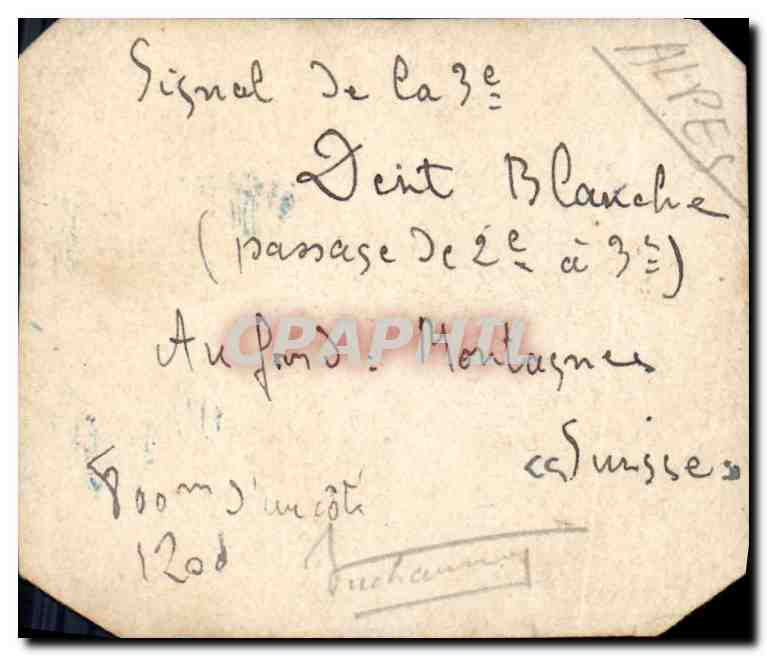 Signal de la 3e
ALPES
Dent Blanche
(passage de 2e à 3e)
Au fond. Montagnes
CPAPHIL
Suisse
800m d'un côté